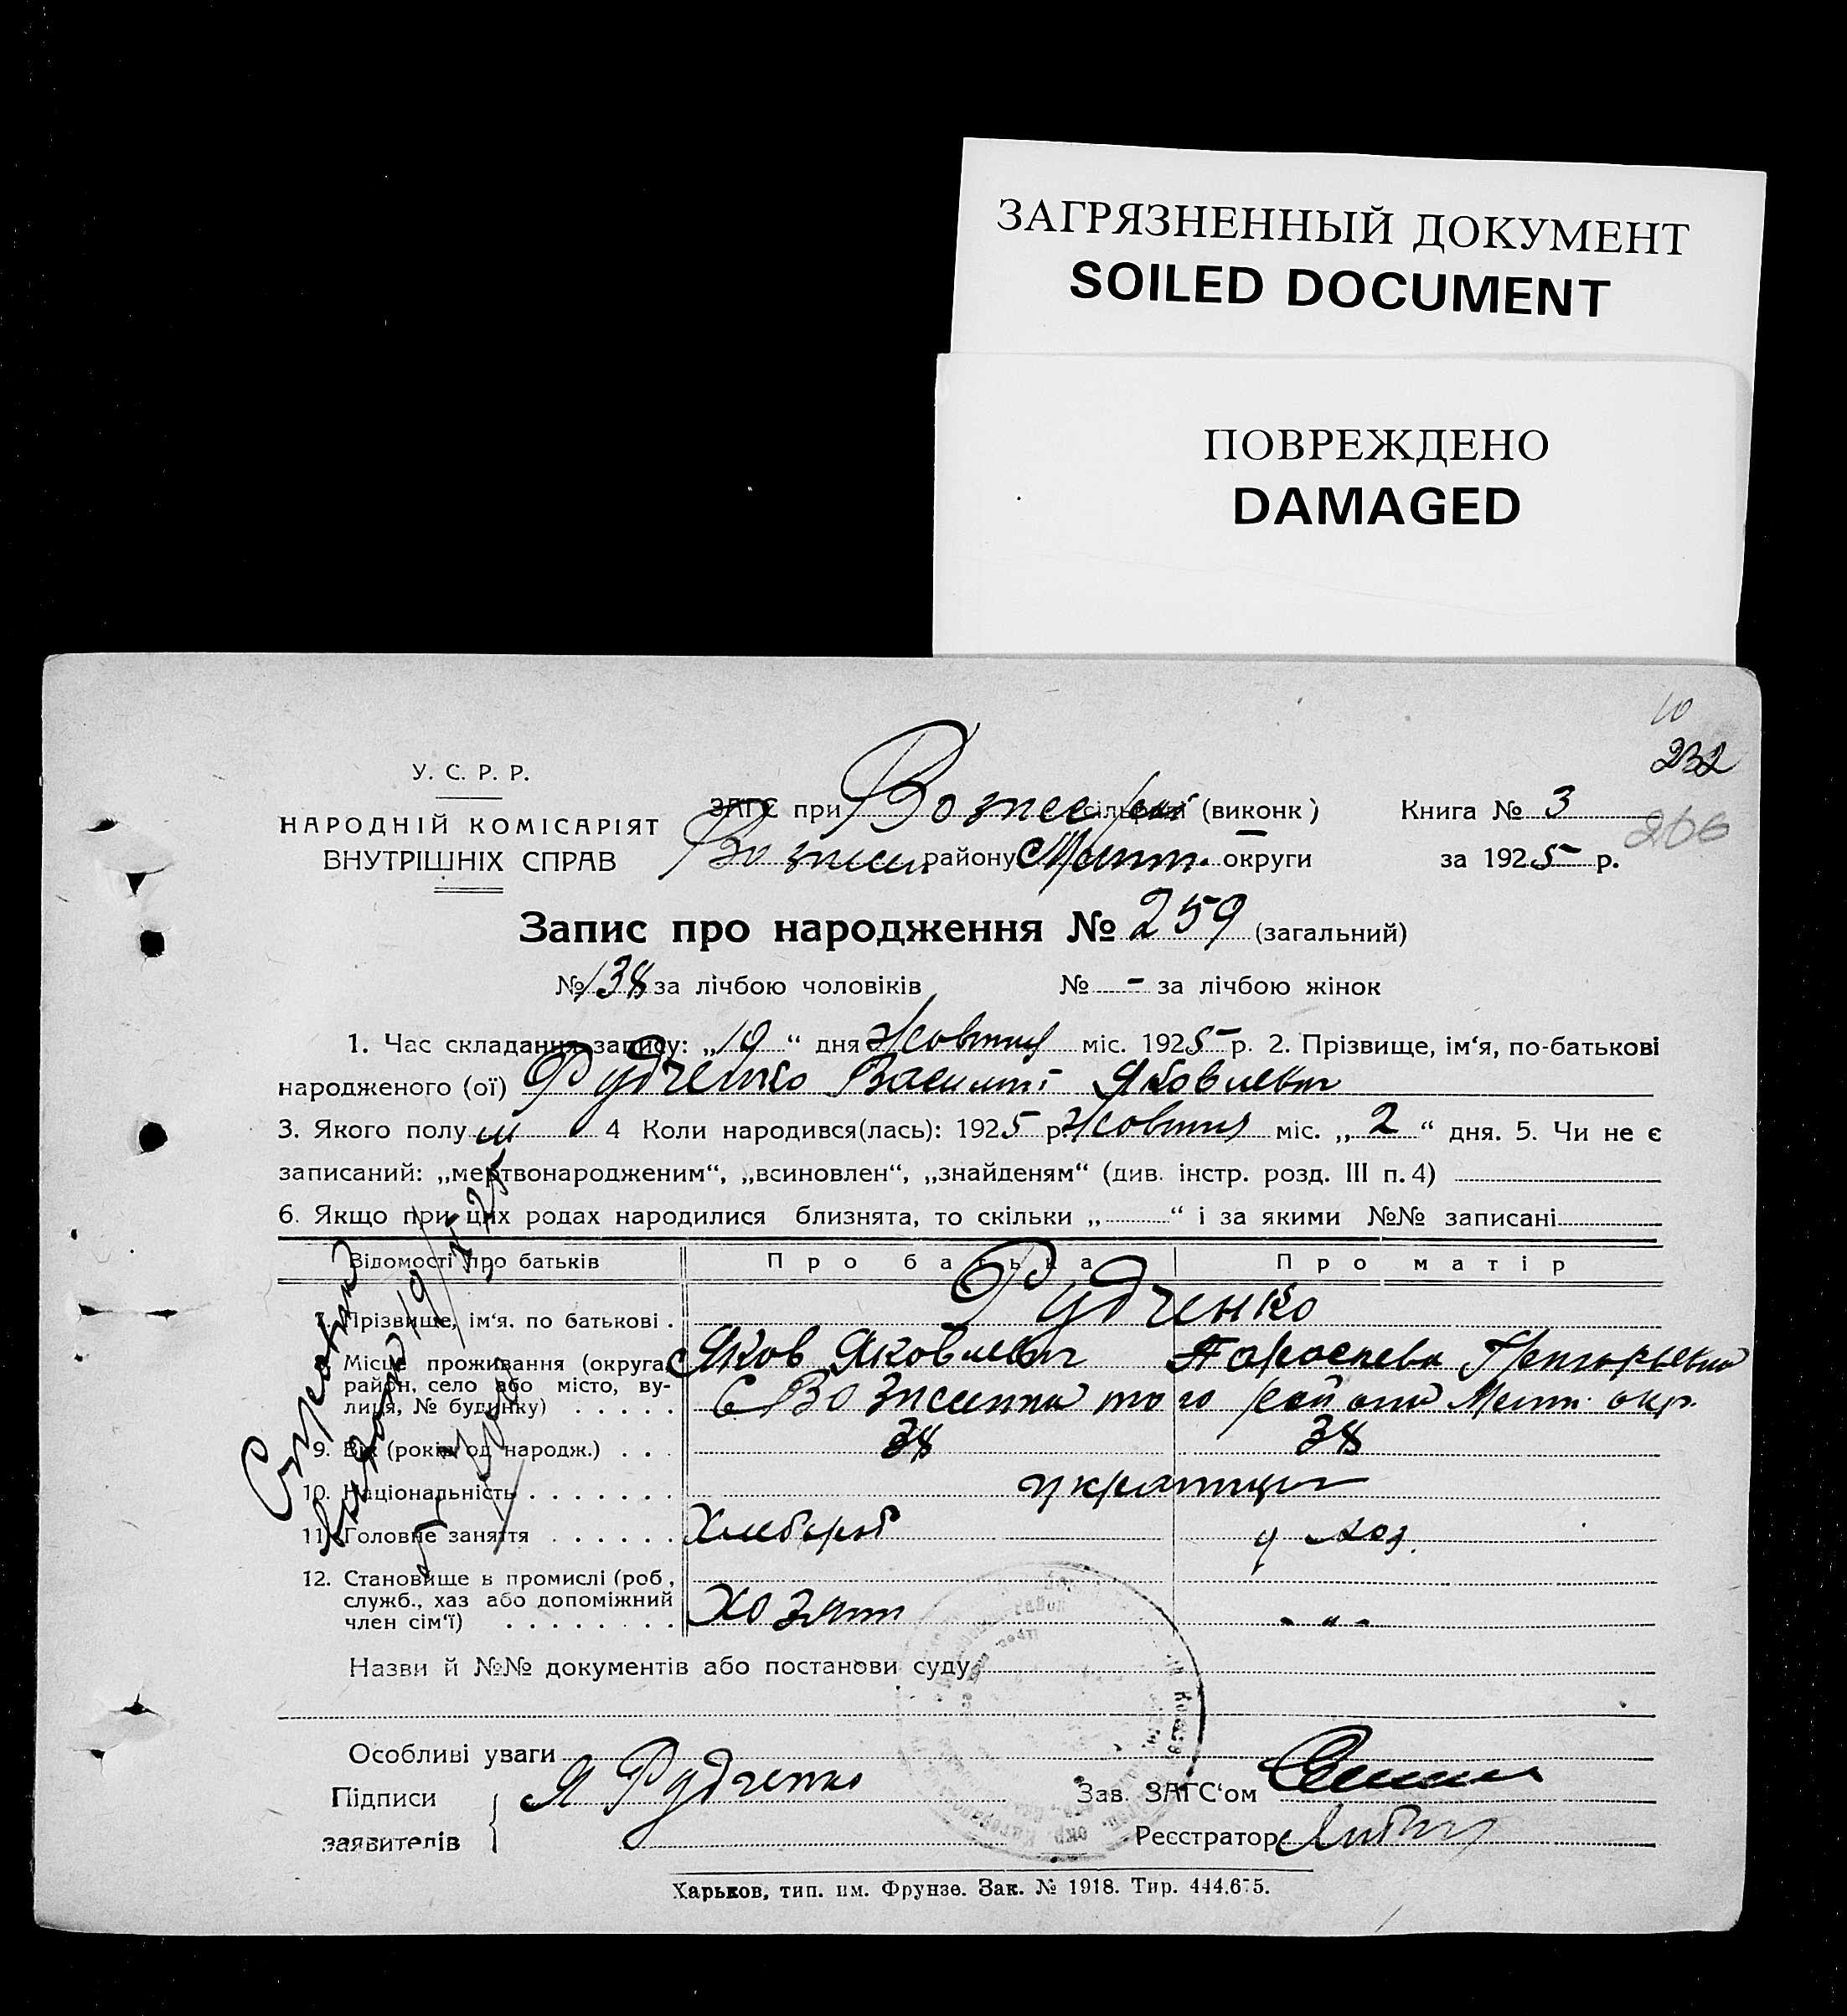 ЗАГРЯЗНЕННЫЙ ДОКУМЕНТ
SOILED DOCUMENT
ПОВРЕЖДЕНО
DAMAGED
10
232
206
У. С. Р. Р.
НАРОДНІЙ КОМІСАРІЯТ
ВНУТРІШНІХ СПРАВ
ЗАГС при сільраді (виконк) Книга № 3
району округи за 1925 р.
Запис про народження № 259 (загальний)
№ 138 за лічбою чоловіків № - за лічбою жінок
1. Час складання запису: „19“ дня Жовтня міс. 1925 р. 2. Прізвище, ім‘я, по-батькові
народженого (ої) Рудченко Василий Яковлевич
3. Якого полу м 4 Коли народився(лась): 1925 р. Жовтня міс. „2“ дня. 5. Чи не є
записаний: „мертвонародженим“, „всиновлен“, „знайденям“ (див. інстр. розд. III п. 4)
6. Якщо при цих родах народилися близнята, то скільки „ “ і за якими №№ записані
Відомості про батьків Про батька Про матір
7. Прізвище, ім‘я. по батькові . Рудченко
Яков Яковлевич Параскева Григорьевна
Місце проживання (округа,
район, село або місто, ву-
лиця, № будинку) . . . . . с Вознесенка того района Мелит. окр.
9. Вік (років од народж.) . . . 38 38
10. Національність . . . . . . . українци
11. Головне заняття . . . . . . Хлебороб д хоз.
12. Становище в промислі (роб.,
служб., хаз або допоміжний
член сім‘ї) . . . . . . . . Хозяин - „ -
Назви й №№ документів або постанови суду
Особливі уваги
Підписи
заявителів Я Рудченко
Зав. ЗАГС‘ом
Реєстратор
Харьков, тип. им. Фрунзе. Зак. № 1918. Тир. 444.675.